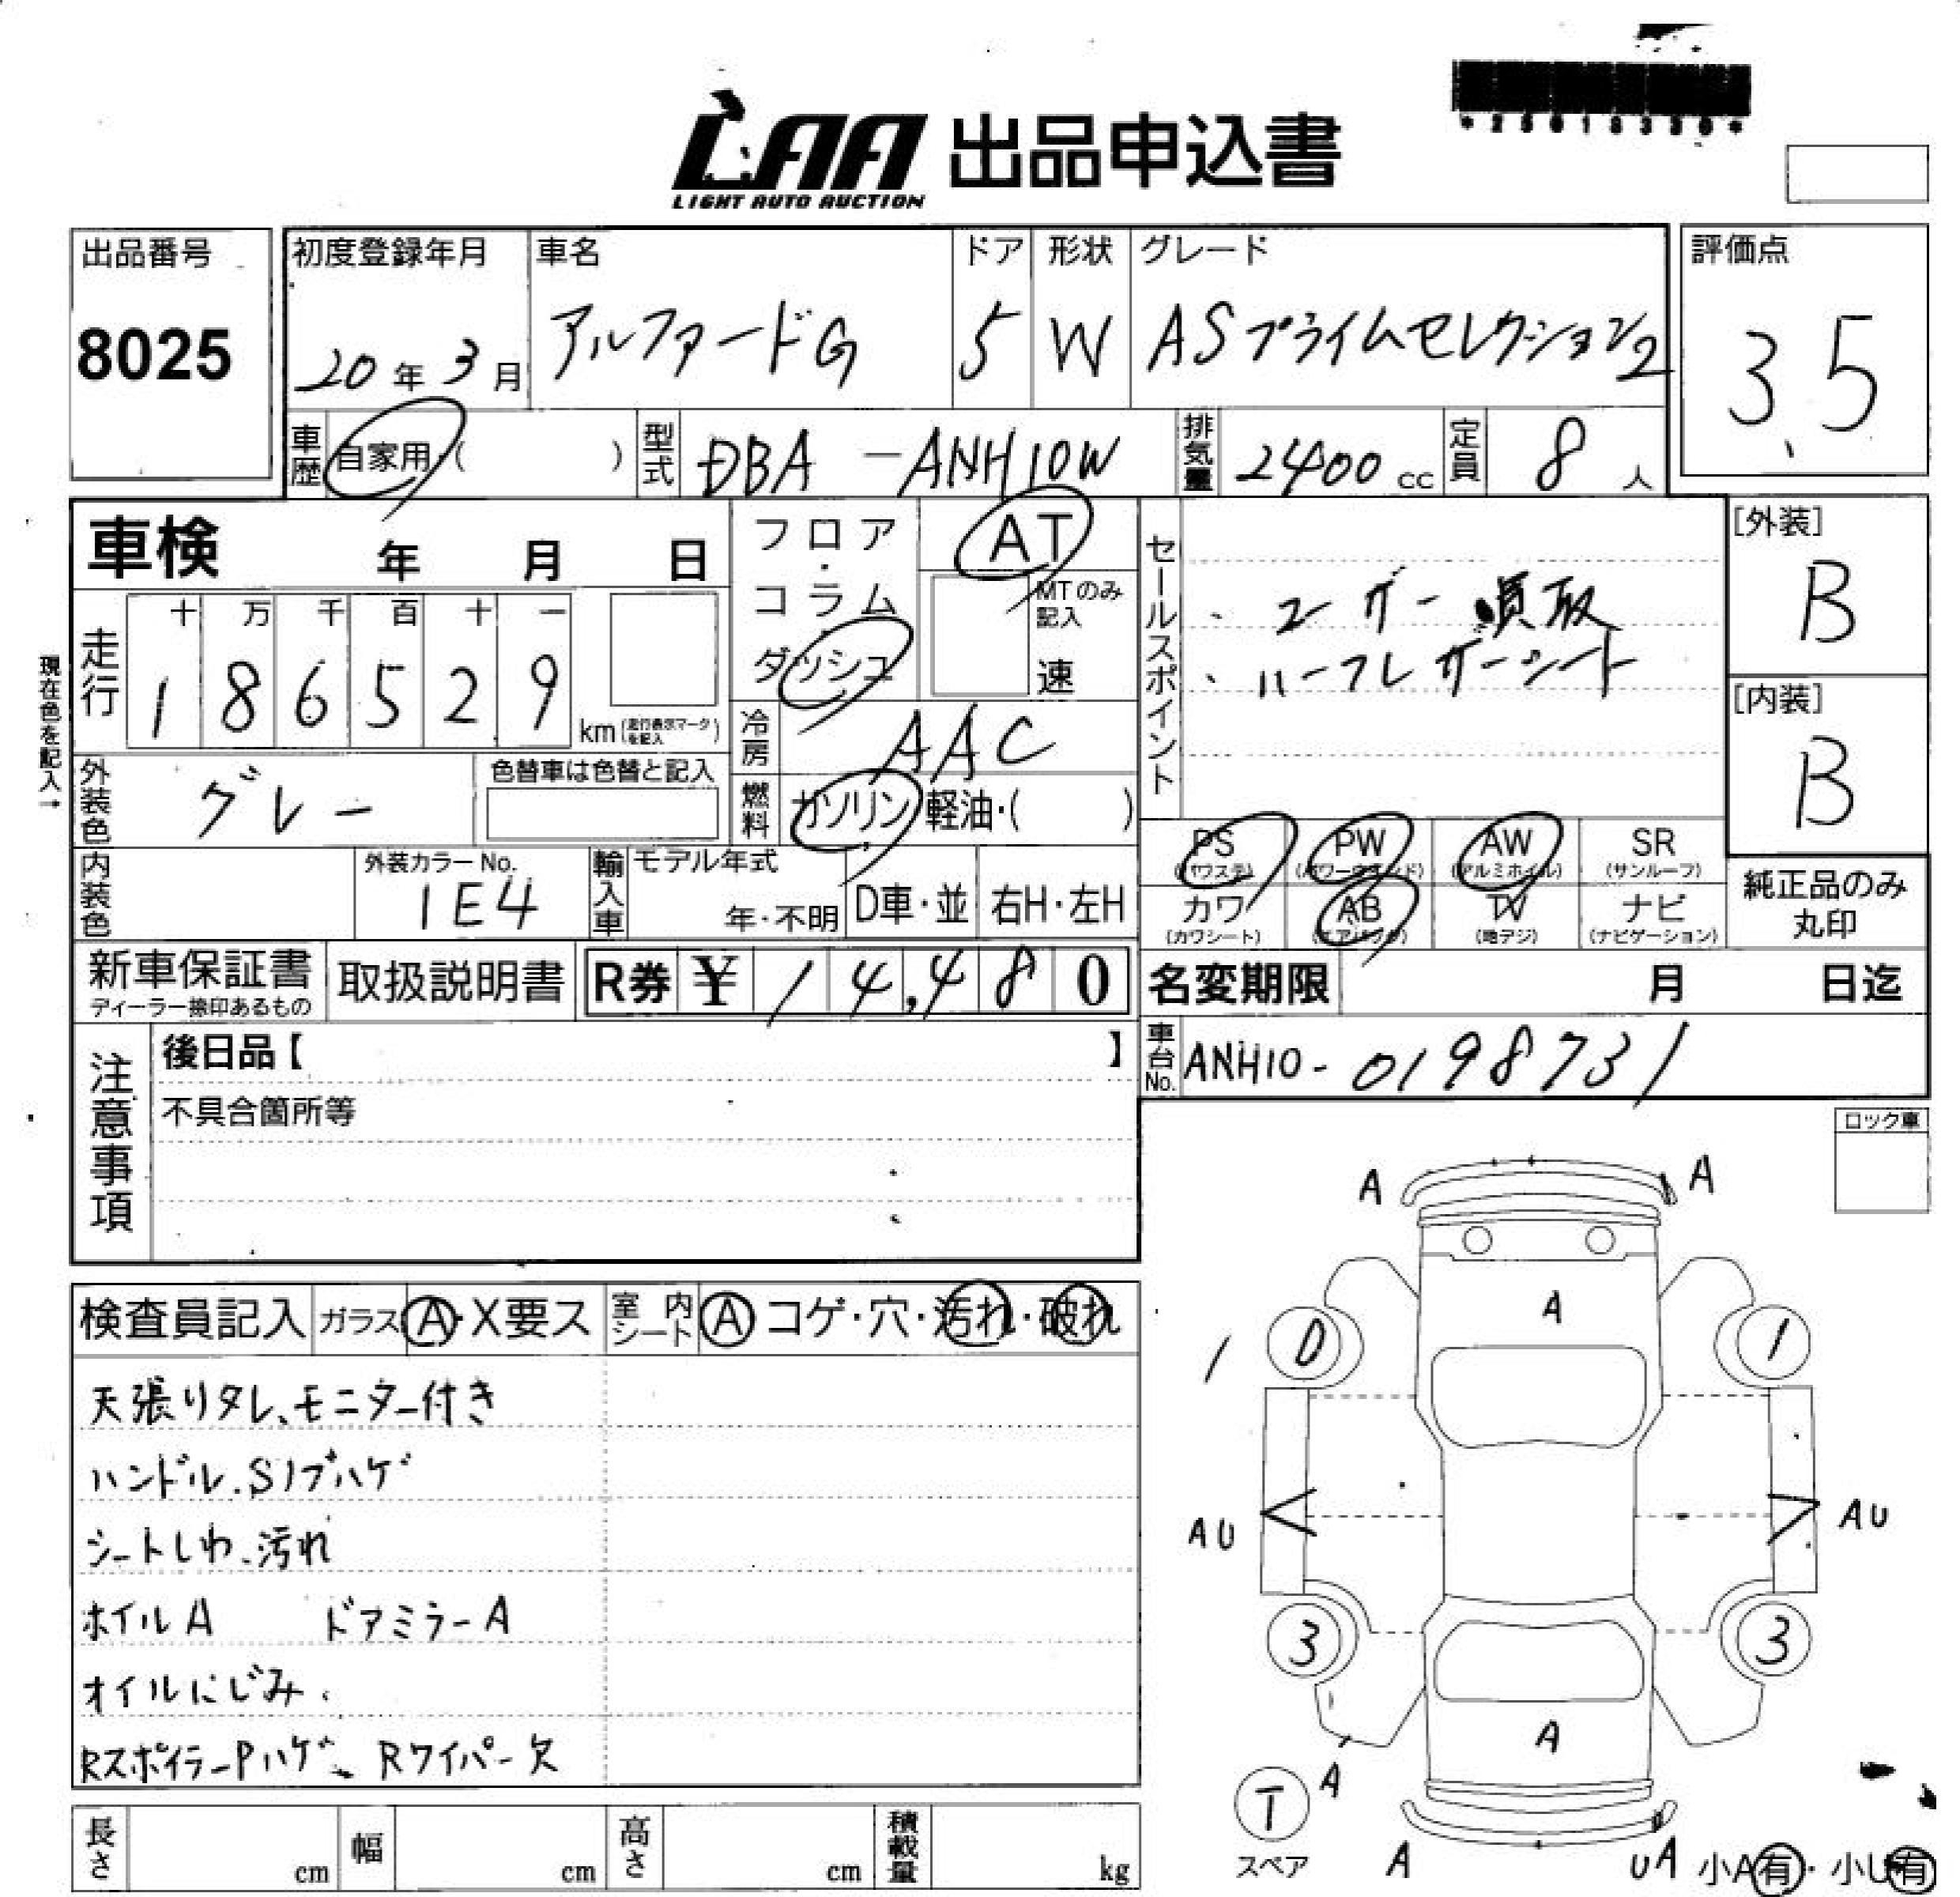 *25018330*
LAA 出品申込書
LIGHT AUTO AUCTION
出品番号 初度登録年月 車名 ドア 形状 グレード 評価点
8025 20年3月 アルファードG 5 W ASプライムセレクション2 3.5
車歴 自家用・( ) 型式 DBA-ANH10W 排気量 2400cc 定員 8人
車検 年 月 日 フロア・コラム・ダッシュ AT セールスポイント [外装]
MTのみ記入 速 ・ユーザー買取 B
走行 十 万 千 百 十 一 ・ハーフレザーシート [内装]
1 8 6 5 2 9 km (走行表示マークを記入) B
現在色を記入→
冷房 AAC
外装色 グレー 色替車は色替と記入 燃料 ガソリン・軽油・( )
PS (パワステ) PW (パワーウインド) AW (アルミホイル) SR (サンルーフ)
内装色 外装カラーNo. 1E4 輸入車 モデル年式 年・不明 D車・並 右H・左H
カワ (カワシート) AB (エアバッグ) TV (地デジ) ナビ (ナビゲーション) 純正品のみ丸印
新車保証書 ディーラー捺印あるもの 取扱説明書 R券 ¥ 1 4,4 8 0 名変期限 月 日迄
車台No. ANH10-0198731
注意事項 後日品【 】
不具合箇所等
ロック車
A A
検査員記入 ガラス A・X要ス 室内シート A コゲ・穴・汚れ・破れ
A
1 0 1
天張りタレ、モニター付き
ハンドル、Sノブハゲ
AU AU
シートしわ、汚れ
ホイルA ドアミラーA
3 3
オイルにじみ
Rスポイラー Pハゲ、Rワイパー欠
A
T A
スペア A UA 小A有・小U有
長さ cm 幅 cm 高さ cm 積載量 kg